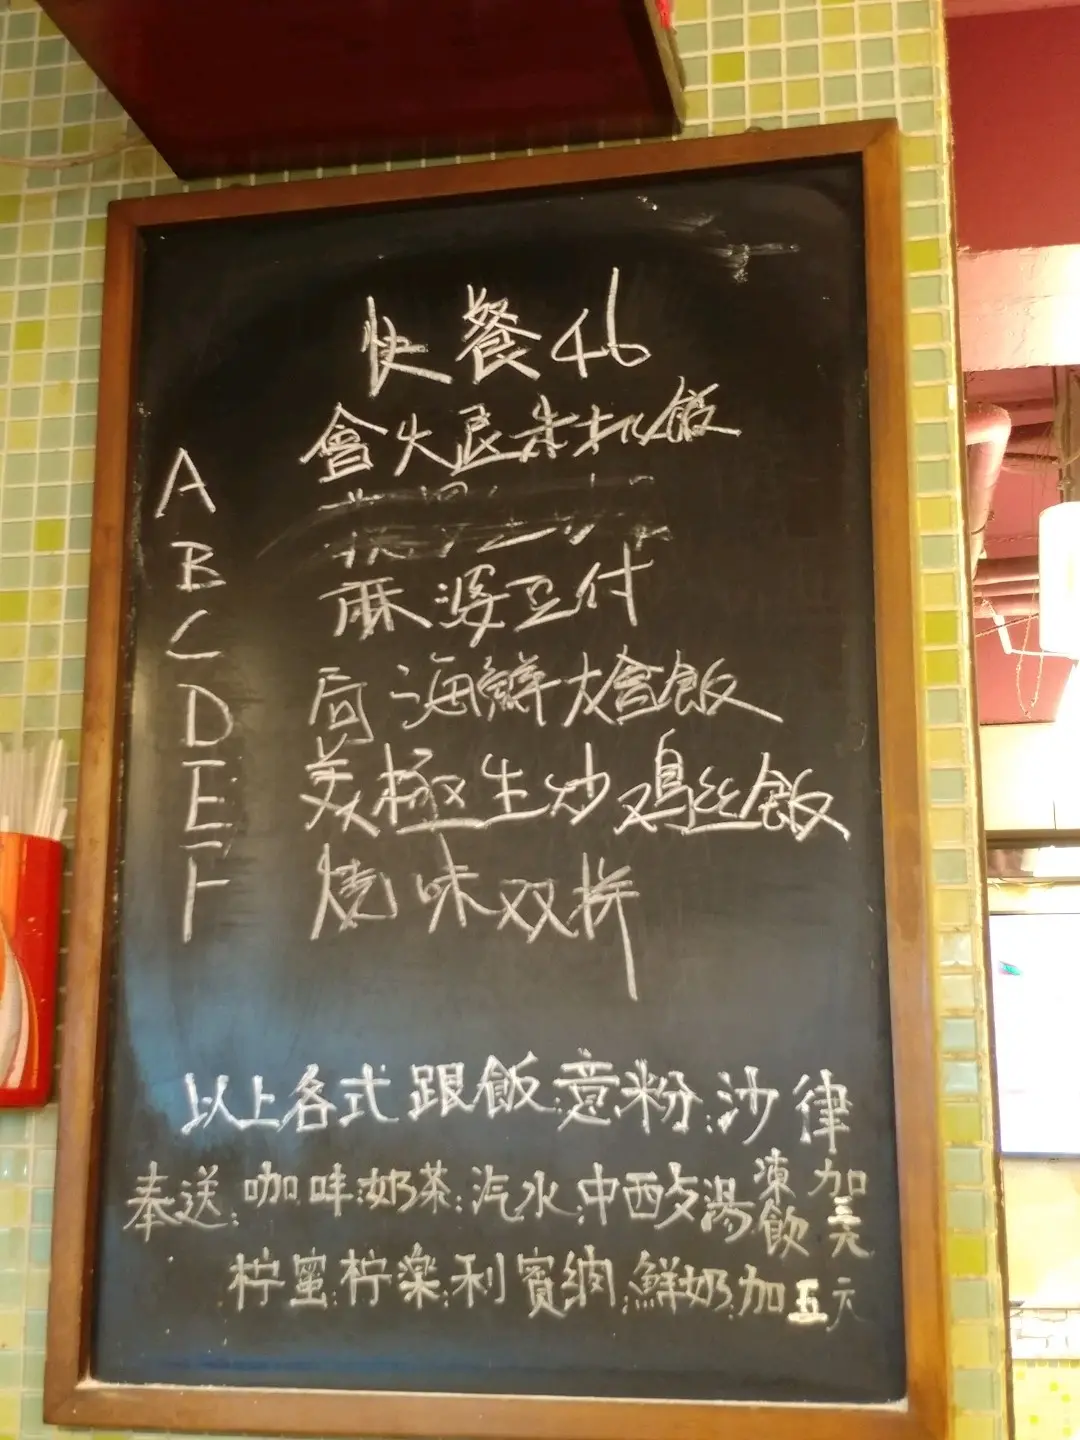 快餐46
A 會火艮朱扒飯
B
C 麻婆豆付
D 局海鮮燴飯
E 美極生炒鸡丝飯
F 燒味双拼
以上各式跟飯:意粉:沙律
奉送:咖啡:奶茶:汽水:中西夕湯 凍飲加三元
柠蜜:柠樂:利賓納:鮮奶:加五元